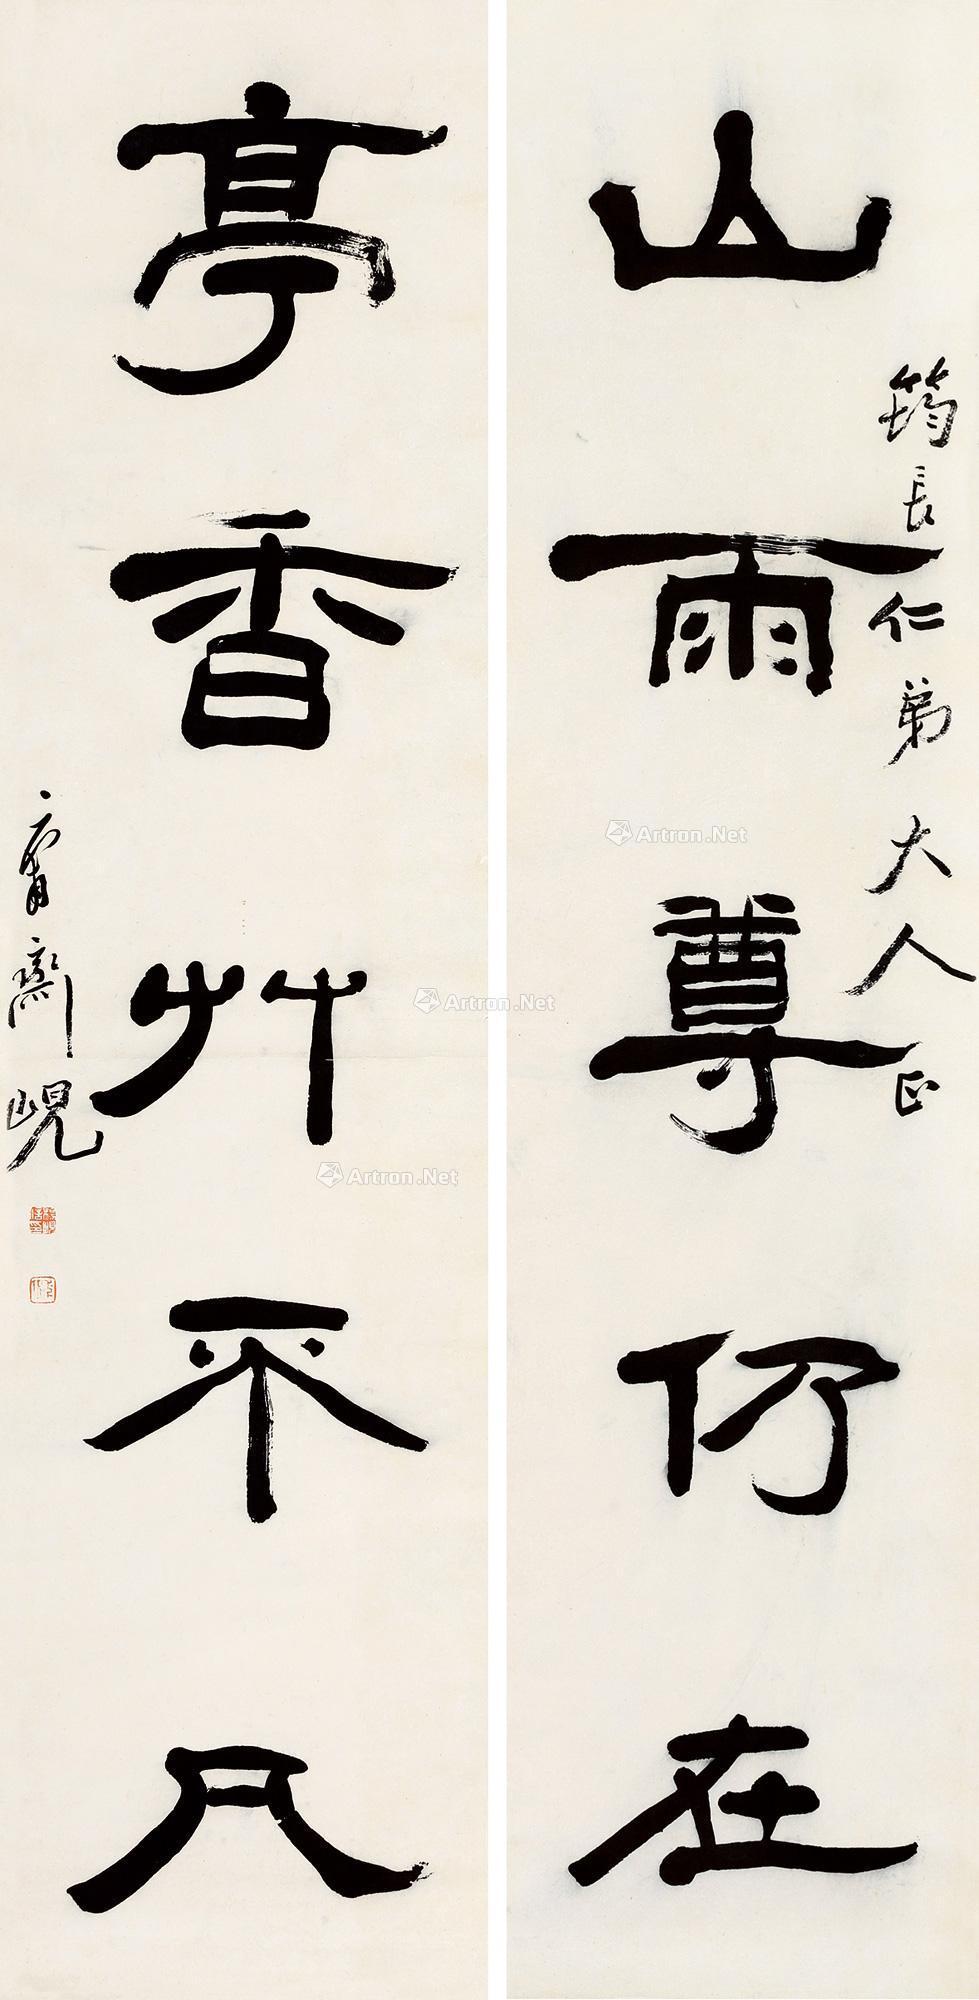 筠長仁弟大人正
山雨尊仍在
亭香艸不凡
庸齋峴
Artron.Net
Artron.Net
Artron.Net